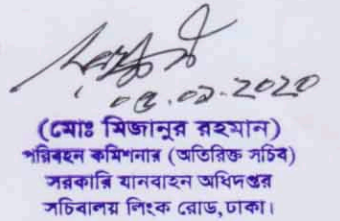 ০৫.০১.2020
(মোঃ মিজানুর রহমান)
পরিবহন কমিশনার (অতিরিক্ত সচিব)
সরকারি যানবাহন অধিদপ্তর
সচিবালয় লিংক রোড, ঢাকা।